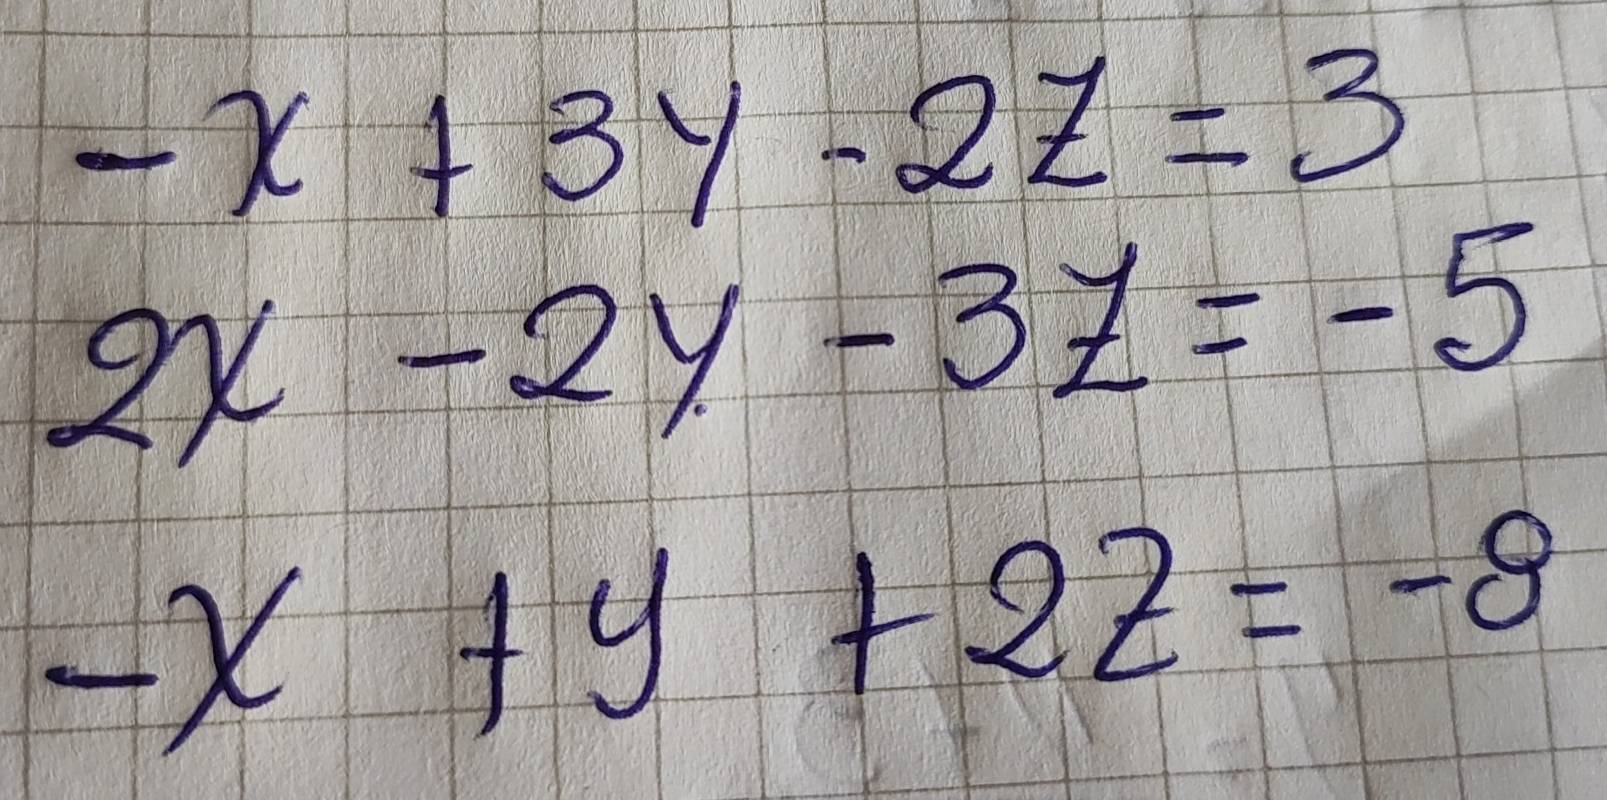 -x + 3y - 2z = 3
2x - 2y - 3z = - 5
-x + y + 2z = -8